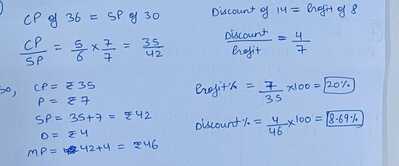 CP of 36 = SP of 30
CP/SP = 5/6 × 7/7 = 35/42
So, CP = ₹35
P = ₹7
SP = 35+7 = ₹42
D = ₹4
MP = 42+4 = ₹46
Discount of 14 = Profit of 8
Discount/Profit = 4/7
Profit% = 7/35 ×100 = 20%
Discount% = 4/46 ×100 = 8.69%